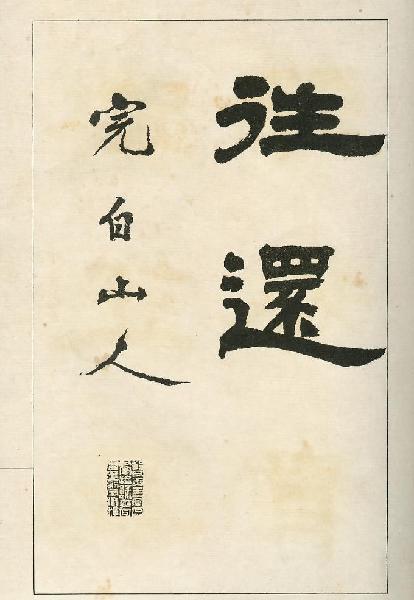 往還
完白山人